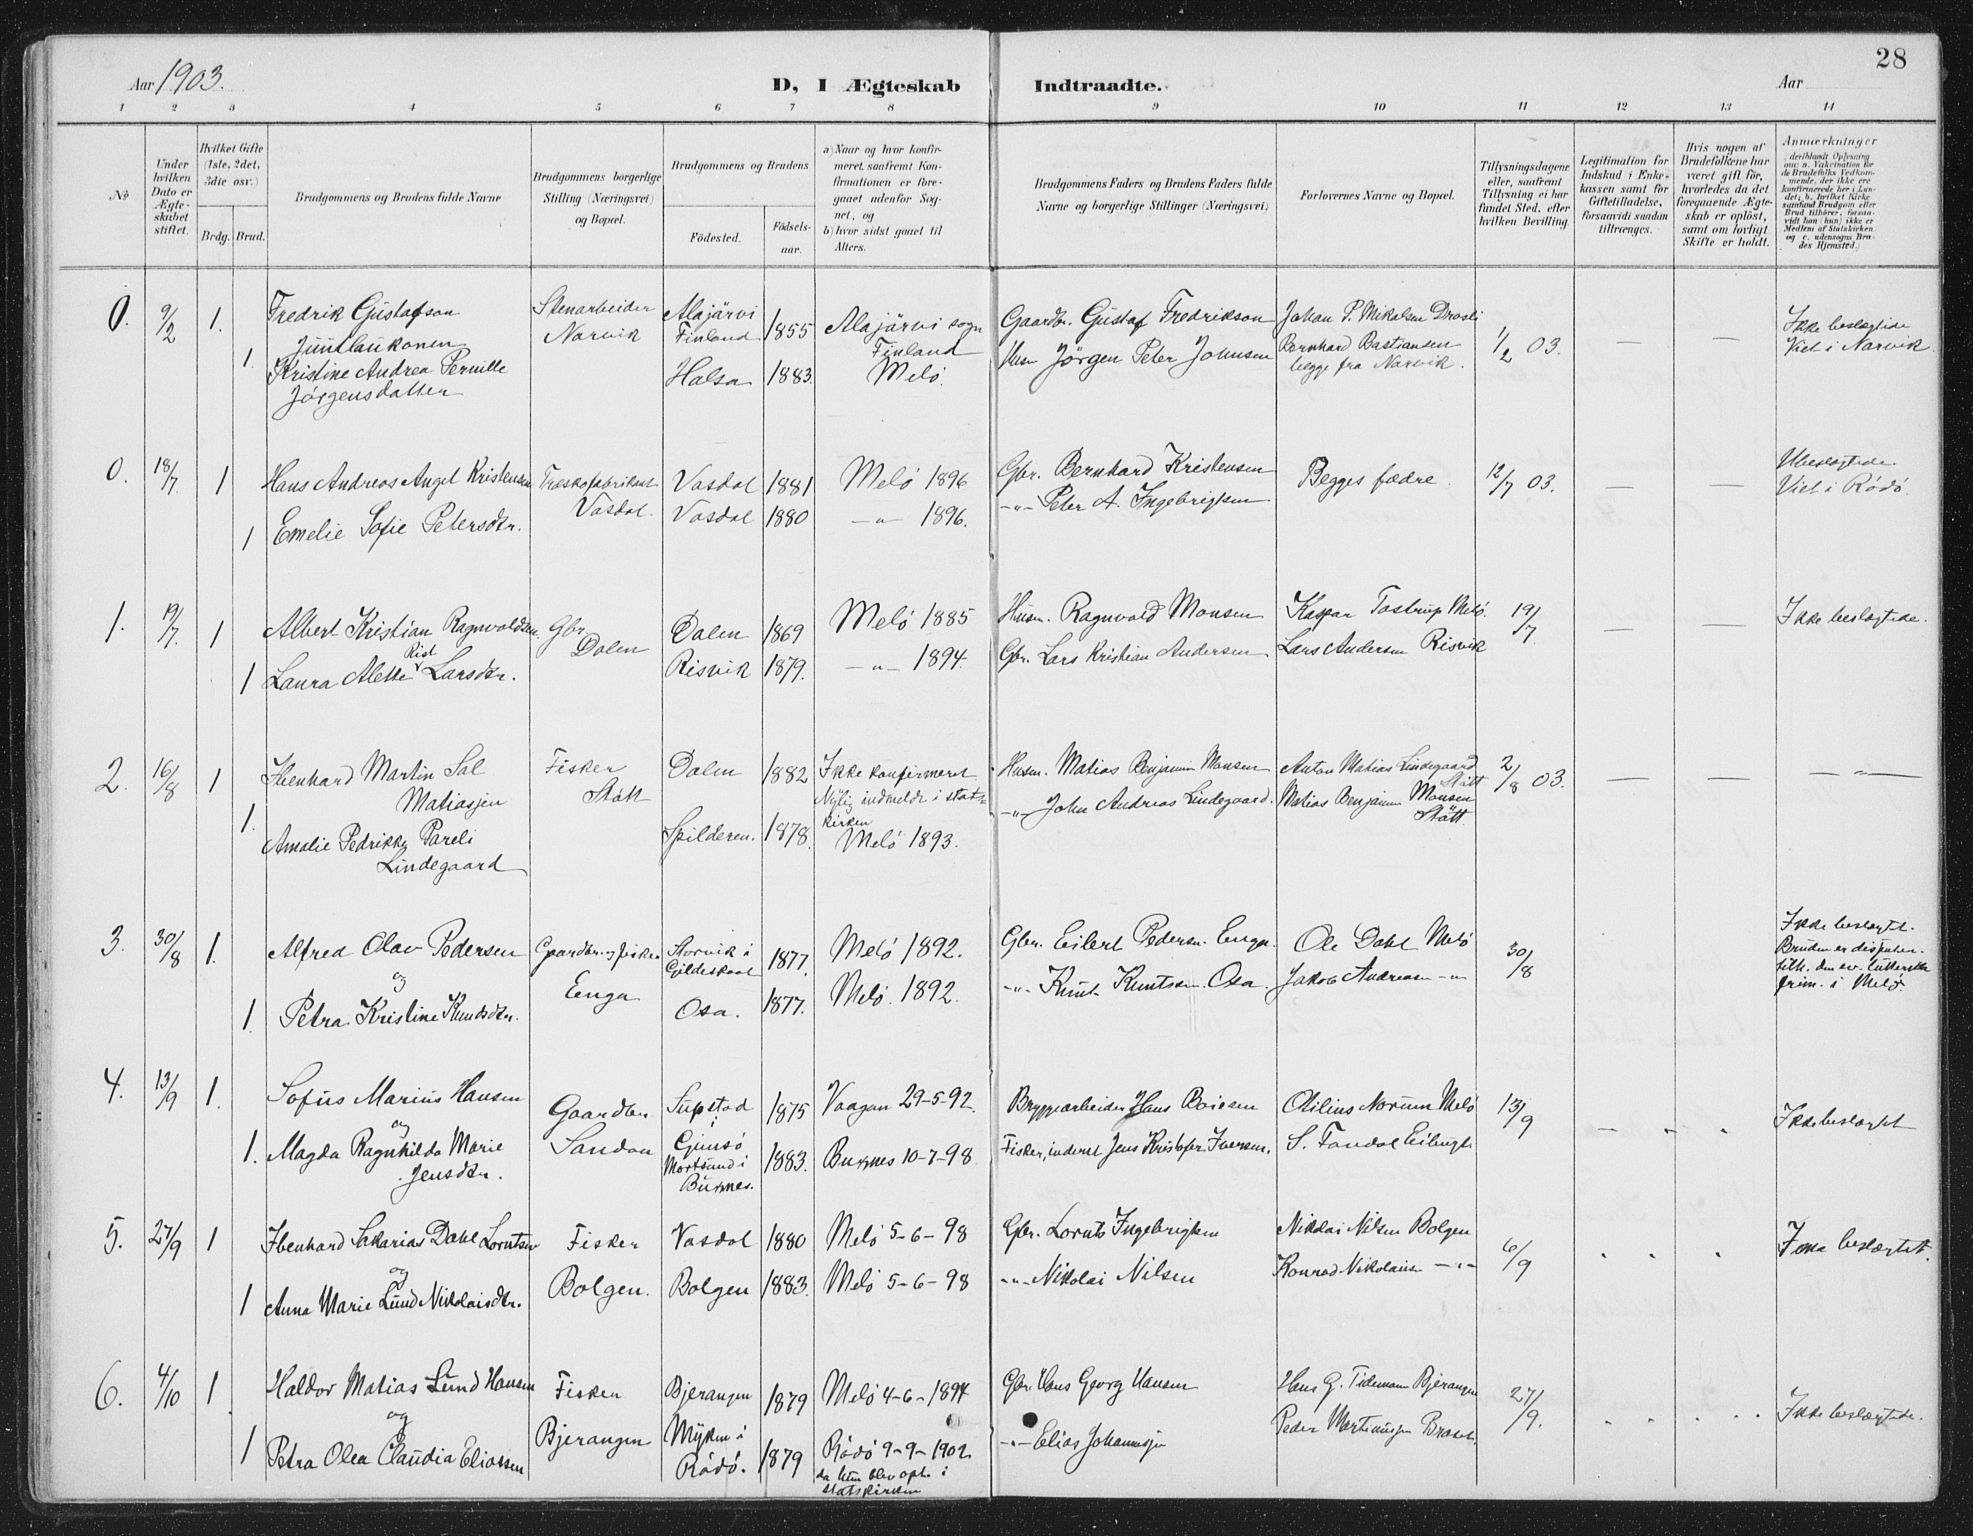 28
Aar 1903.
D, I Ægteskab Indtraadte.
Aar
1 2 3 4 5 6 7 8 9 10 11 12 13 14
No
Under hvilken Dato er Ægteskabet stiftet.
Hvilket Gifte (1ste, 2det, 3die osv.)
Brdg. Brud.
Brudgommens og Brudens fulde Navne
Brudgommens borgerlige Stilling (Næringsvei) og Bopæl.
Brudgommens og Brudens
Fødested. Fødselsaar.
a) Naar og hvor konfirmeret, saafremt Konfirmationen er foregaaet udenfor Sognet, og
b) hvor sidst gaaet til Alters.
Brudgommens Faders og Brudens Faders fulde Navne og borgerlige Stillinger (Næringsvei)
Forlovernes Navne og Bopæl.
Tillysningsdagene eller, saafremt Tillysning ei har fundet Sted, efter hvilken Bevilling
Legitimation for Indskud i Enkekassen samt for Giftetilladelse, forsaavidt saadan tiltrænges.
Hvis nogen af Brudefolkene har været gift før, hvorledes da det foregaaende Ægteskab er opløst, samt om lovligt Skifte er holdt.
Anmærkninger
(deriblandt Oplysning om: a. Vakcination for de Brudefolks Vedkommende, der ikke ere konfirmerede her i Landet; b. hvilket Kirkesamfund Brudgom eller Brud tilhører, forsaavidt han (hun) ikke er Medlem af Statskirken, og c. udensogns Brudes Hjemsted.)
0. 9/2 1. Fredrik Gustafson Juntlaukonen Stenarbeider Narvik Alajärvi Finland 1855 Alajärvi sogn Finland Gaardbr. Gustaf Fredrikson Johan P. Mikalsen 1/2 03. — — Ikke beslægtede Viet i Narvik
1. Kristine Andrea Pernille Jørgensdatter Halsa 1883. Melö Husm Jørgen Peter Johnsen Bernhard Bastiansen begge fra Narvik.
0. 18/7 1 Hans Andreas Angel Kristensen Træskofabrikant Vasdal. Vasdal 1881 Melö 1896 Gbr. Bernhard Kristensen Begges fædre. 12/7 03. — — Ubeslægtede Viet i Rödö.
1 Emelie Sofie Petersdtr. Vasdal 1880 —"— 1896. —"— Peter A. Ingebrigtsen
1. 19/7 1 Albert Kristian Ragnvaldsen. Gbr Dalen Dalen 1869 Melö 1885 Husm. Ragnvald Monsen Kaspar Tostrup Melö. 19/7 — — Ikke beslægtede.
1 Laura Alette Rist Larsdtr. Risvik 1879. —"— 1894. Gbr. Lars Kristian Andersen Lars Andersen Risvik
2. 16/8 1 Ibenhard Martin Sal Matiasjen Fisker Støtt Dalen 1882 Ikke konfirmeret Nylig indmeldt i statskirken Husm. Matias Benjamin Monsen Anton Matias Lindegaard Støtt 2/8 03. — — —"—
1. Amalie Pedrikke Pareli Lindegaard Spilderen. 1878. Melö 1893. —"— John Andreas Lindegaard. Matias Benjamin Monsen Støtt.
3. 30/8 1. Alfred Olav Pedersen Gaardbr. og fisker Enga Storvik i Gildeskaal 1877. Melö 1892. Gbr. Eilert Pedersn. Enga. Ole Dahl Melö 30/8 Ikke beslægt. Bruden er dissenter. tilh. den ev. lutherske frim. i Melö.
og
1. Petra Kristine Knudsdtr. Osa. 1877. Melö. 1892. —"— Knut Knutsen. Osa. Jakob Andreasen —"—
4. 13/9 1. Sofus Marius Hansen Gaardbr. Sandan Supstad i Gimsö 1875 Vaagan 29-5-92. Bryggearbeider Hans Boiesen Otilius Norum Melö 13/9 — Ikke beslægtet
og
1. Magda Ragnhilda Marie Jensdtr. Mortsund i Buxnes. 1883. Buxnes 10-7-98. Fisker, inderst Jens Kristofer Iversen. S. Fondal
5. 27/9 1 Ibenhard Sakarias Dahl Lorntsen Fisker Bolgen. Vasdal 1880 Melö 5-6-98 Gbr. Lornts Ingebrigtsen Nikolai Nilsen Bolgen 6/9 beslægtet.
og
1 Anna Marie Lund Nikolaisdtr. Bolgen 1883. Melö 5-6-98 —"— Nikolai Nilsen Konrad Nikolaisen —"—
6. 4/10 1 Haldor Matias Lund Hansen Fisker Bjerangen Bjerangen 1879 Melö 4-6-1894 Gbr. Hans Georg Hansen Hans G. Tidemann Bjerangen 27/9. Ikke beslægtede.
og
1 Petra Olea Claudia Eliassen Myken i Rödö. 1879 Rödö 9-9-1902 da hun blev opt. i statskirken —"— Elias Johannesjen Peder Martinusjen